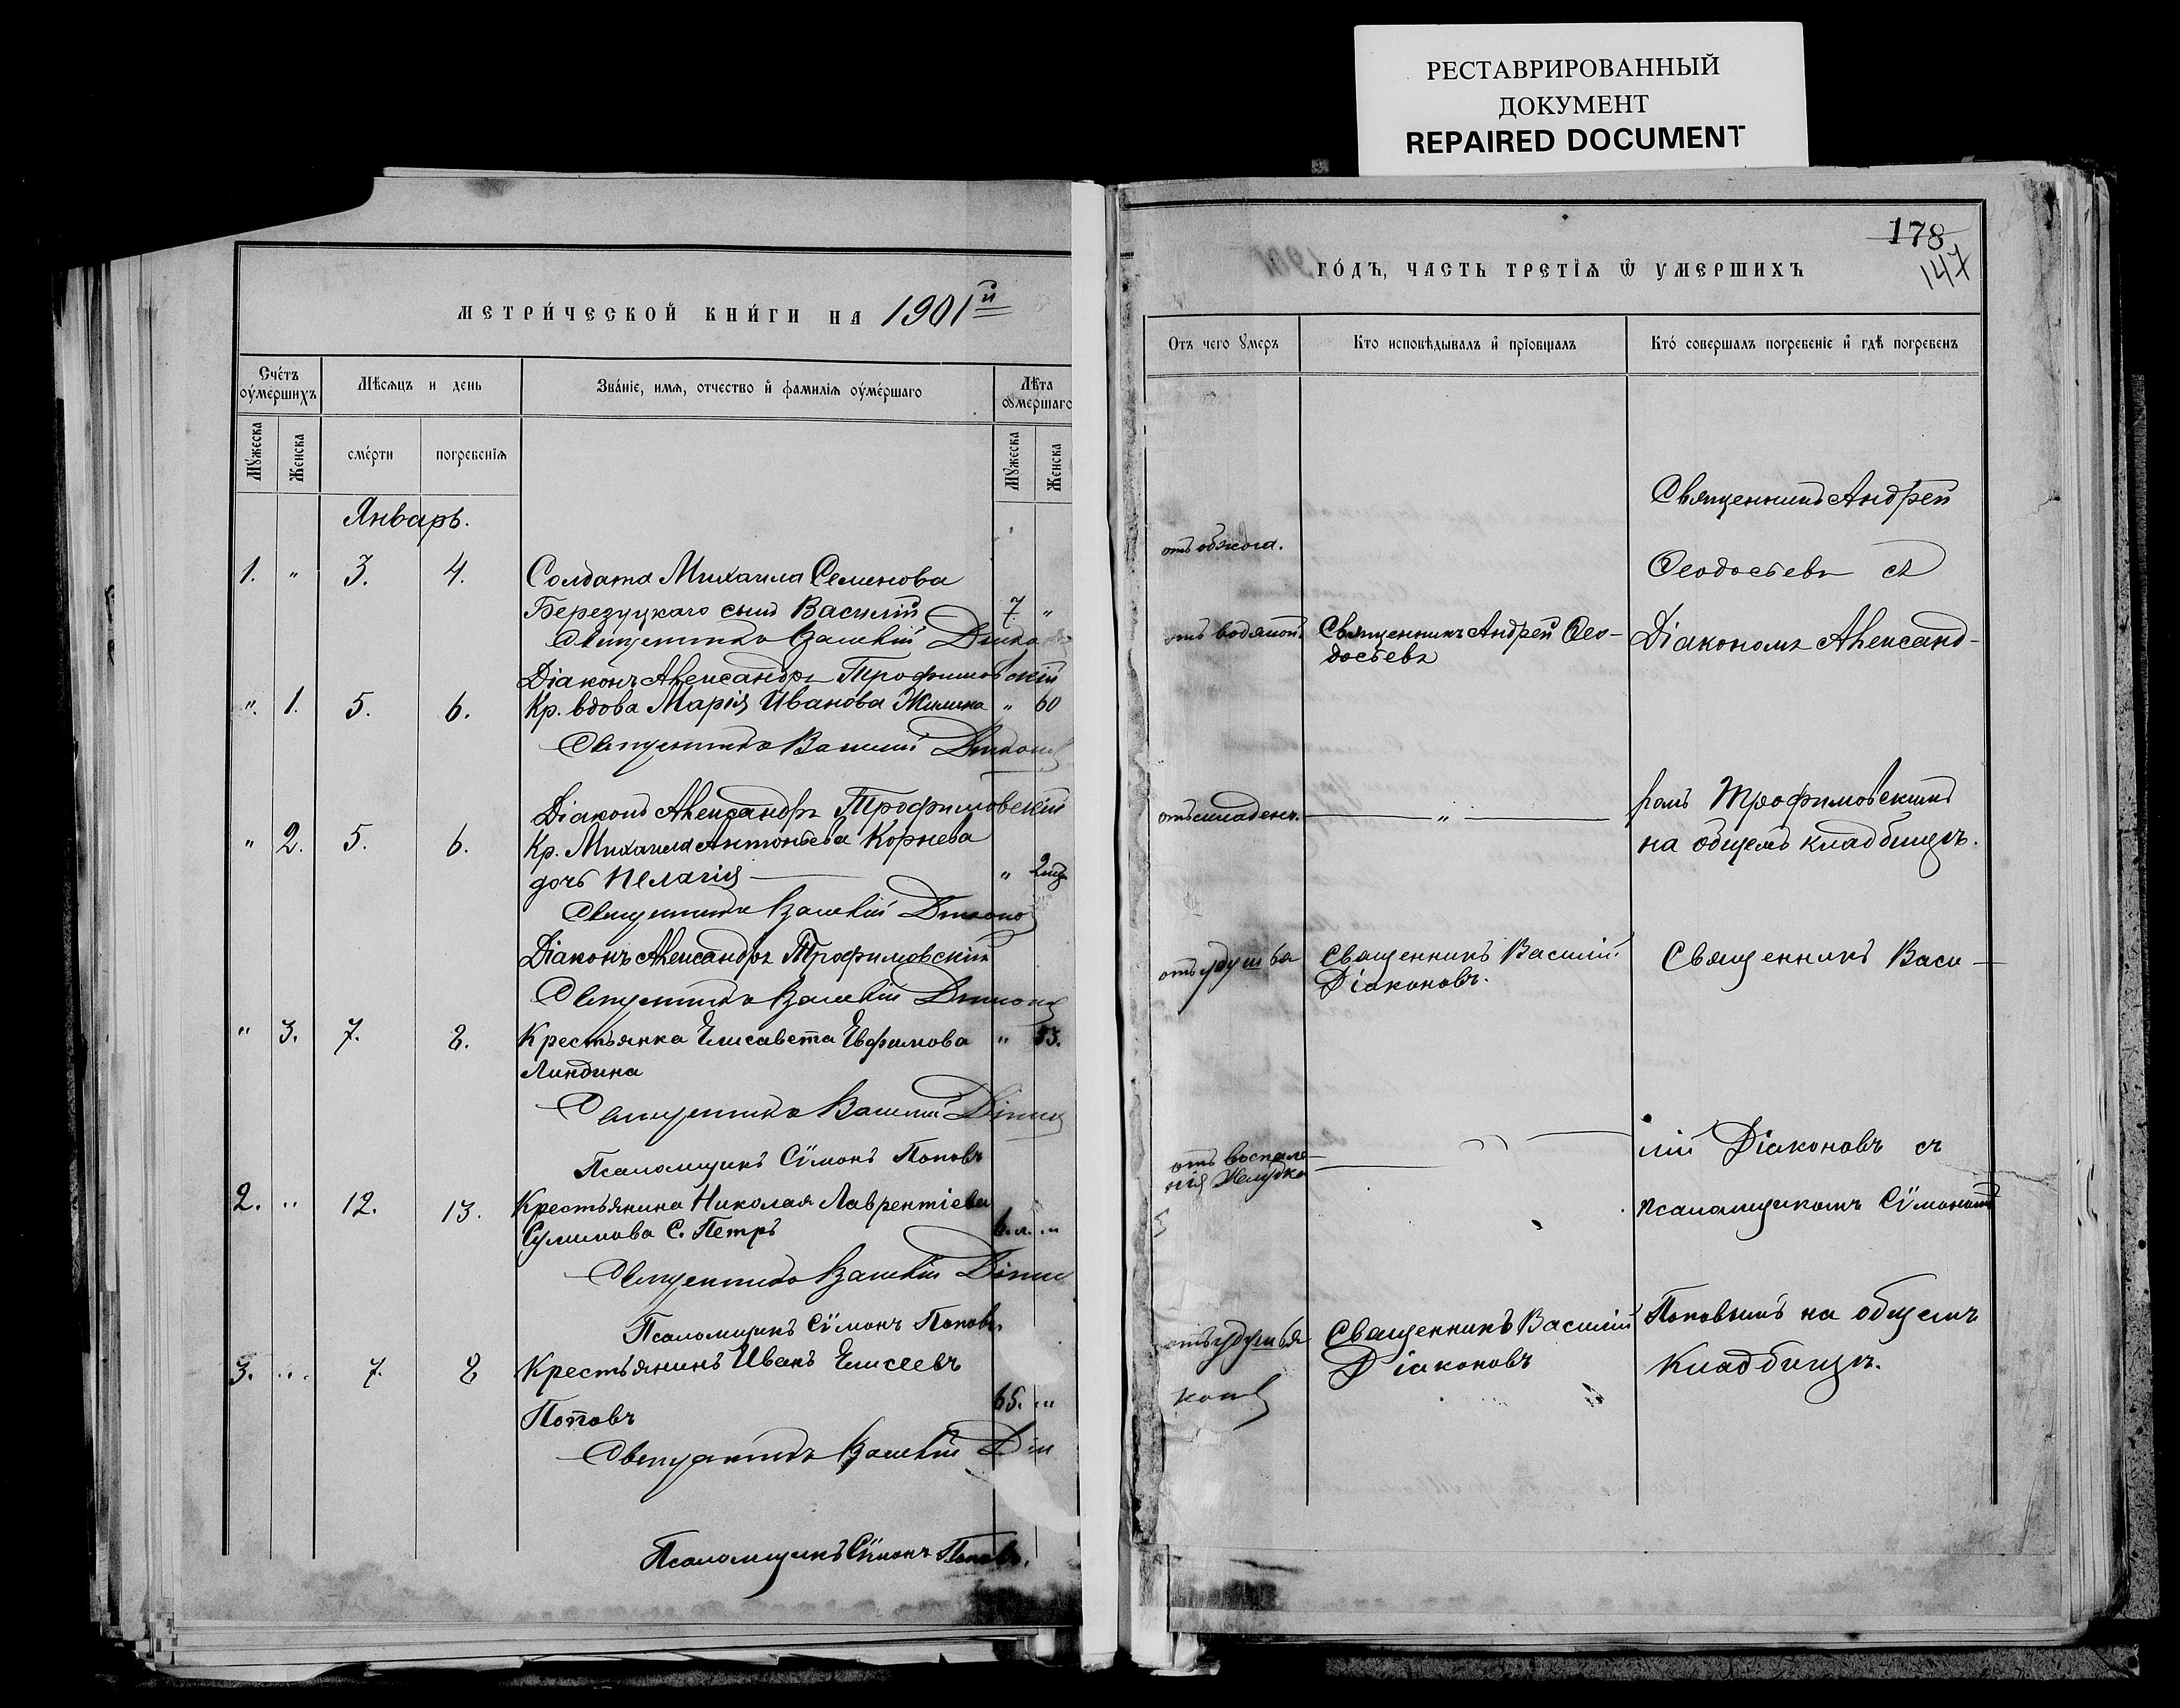 РЕСТАВРИРОВАННЫЙ
ДОКУМЕНТ
REPAIRED DOCUMENT
МЕТРИ́ЧЕСКОЙ КНИ́ГИ НА 1901й
Сче́тъ оу҆ме́ршихъ
Мѣсяцъ и день
Зва́нїе, имѧ, отчество и҆ фамилїѧ оу҆ме́ршаго
Лѣта оумершаго
Мꙋжеска
Женска
сме́рти
погребенїѧ
Мꙋжеска
Женска
Январь.
1. " 3. 4. Солдата Михаила Семенова
Березуцкаго сынъ Василій 7. "
Священникъ Василій
Діаконъ Александръ Трофимовскій
". 1. 5. 6. Кр. вдова Марія Иванова " 60
Священникъ Василій Діаконов
Діаконъ Александръ Трофимовскій
" 2. 5. 6. Кр. Михаила Антоньева Корнева
дочь Пелагія " 2
Священникъ Василій Діаконов
Діаконъ Александръ Трофимовскій
Священникъ Василій Діаконов
" 3. 7. 8. Крестьянка Елисавета Евфимова " 53.
Линдина
Священникъ Василій
Псаломщикъ Сѵмонъ Поповъ
2. " 12. 13. Крестьянина Николая Лаврентіева
Сулимова С. Петръ "
Священникъ Василій
Псаломщикъ Сѵмонъ Поповъ.
3. ... 7. 8 Крестьянинъ Иванъ Елисеевъ
Поповъ 65. "
Священникъ Василій Діа
Псаломщикъ Сѵмонъ Поповъ.
178
147
ГО́ДЪ, ЧАСТЬ ТРЕТЇѦ Ѿ УМЕРШИХЪ
Отъ чего ꙋмеръ
Кто исповѣдывалъ и҆ прїобщалъ
Кто́ совершалъ погребенїе и҆ гдѣ погребенъ
Священникъ Андрей
отъ обжога.
Ѳеодосьевъ съ
отъ водяной. Священникъ Андрей Ѳео-
досьевъ
Діакономъ Александ-
отъ младенч. "
ромъ Трофимовскимъ
на общемъ кладбищѣ.
отъ удушья Священникъ Василій
Діаконовъ.
Священникъ Васи-
отъ воспале-
нія желудка "
лій Діаконовъ съ
псаломщикомъ Сѵмономъ
отъ удушья Священникъ Василій
Діаконовъ
Поповымъ на общемъ
кладбищѣ.
конов